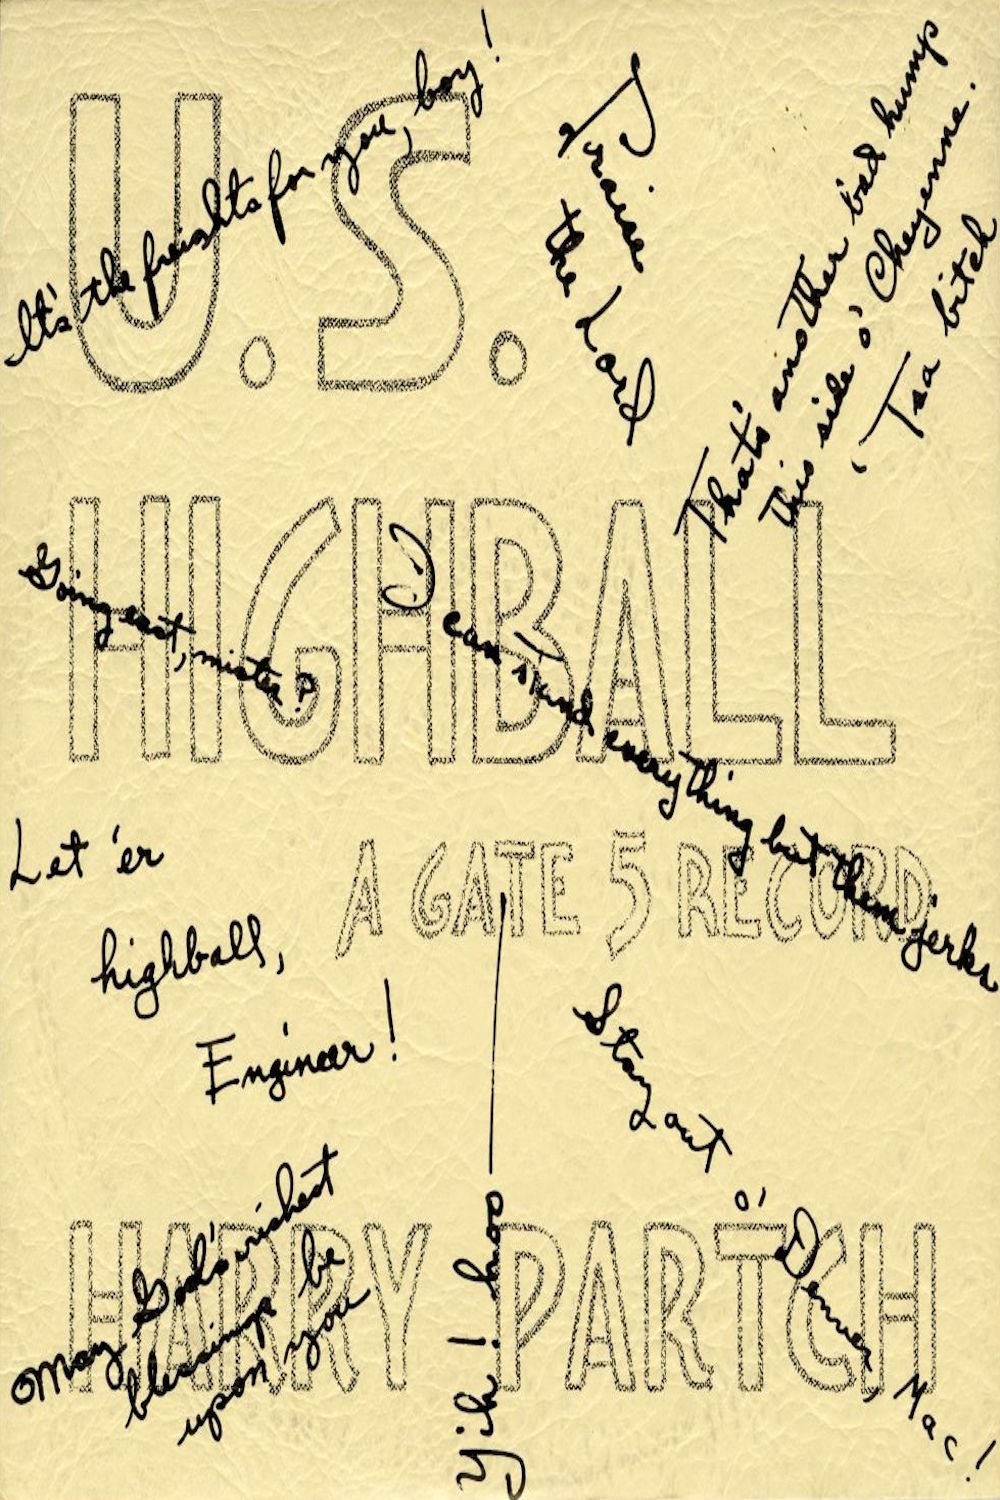 U.S.
HIGHBALL
A GATE 5 RECORD
HARRY PARTCH
It's the freights for you, boy!
Praise
the Lord
That's another bad hump
this side o' Cheyenne.
'Tsa bitch
Going east, mister?
I can stand everything but them jerks
Let 'er
highball,
Engineer!
Stay out
o' Denver, Mac!
May God's richest
blessings be
upon you
Yih ! hoo